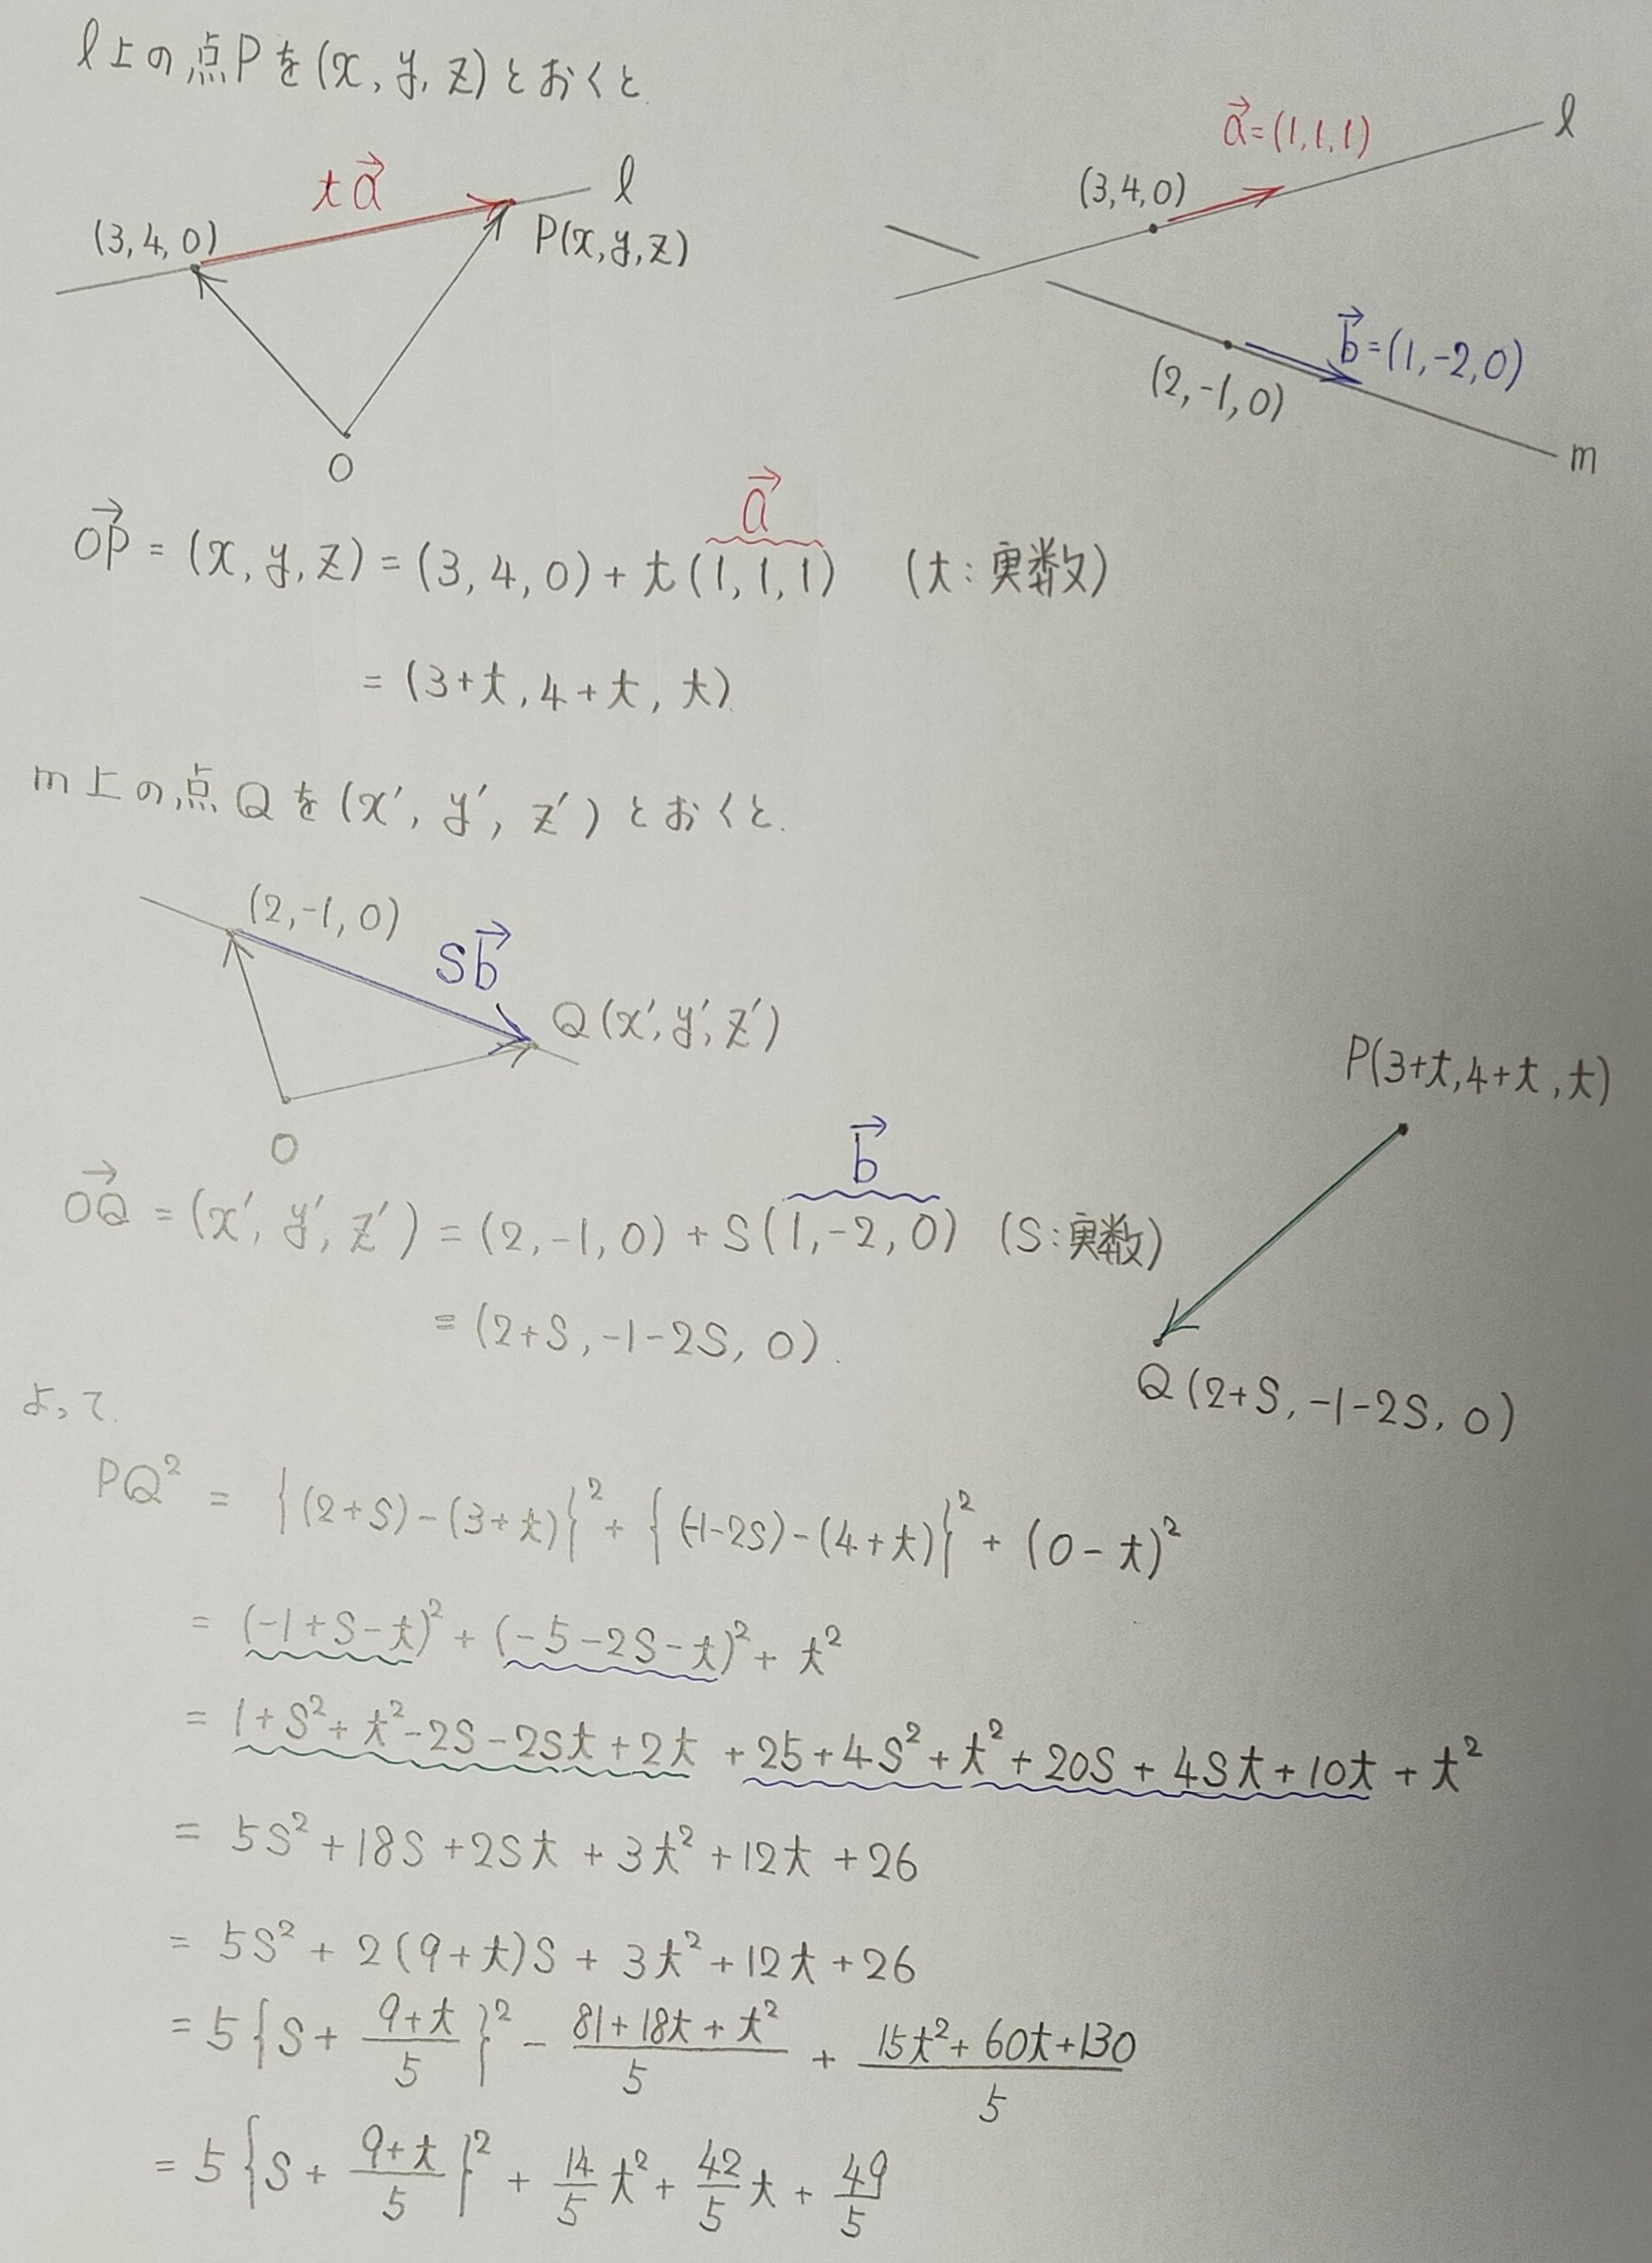 l上の点Pを(x, y, z)とおくと
ta⃗
l
(3, 4, 0)
P(x, y, z)
O
a⃗=(1, 1, 1)
l
(3, 4, 0)
b⃗=(1, -2, 0)
(2, -1, 0)
m
a⃗
OP⃗ = (x, y, z) = (3, 4, 0) + t(1, 1, 1) (t:実数)
= (3+t, 4+t, t)
m上の点Qを(x′, y′, z′)とおくと.
(2, -1, 0)
sb⃗
Q(x′, y′, z′)
O
b⃗
OQ⃗ = (x′, y′, z′) = (2, -1, 0) + s(1, -2, 0) (s:実数)
= (2+s, -1-2s, 0).
P(3+t, 4+t, t)
Q(2+s, -1-2s, 0)
よって.
PQ² = {(2+s)-(3+t)}² + {(-1-2s)-(4+t)}² + (0-t)²
= (-1+s-t)² + (-5-2s-t)² + t²
= 1+s²+t²-2s-2st+2t +25+4s²+t²+20s+4st+10t + t²
= 5s²+18s+2st+3t²+12t+26
= 5s² + 2(9+t)s + 3t²+12t+26
= 5{s+(9+t)/5}² - (81+18t+t²)/5 + (15t²+60t+130)/5
= 5{s+(9+t)/5}² + 14/5 t² + 42/5 t + 49/5